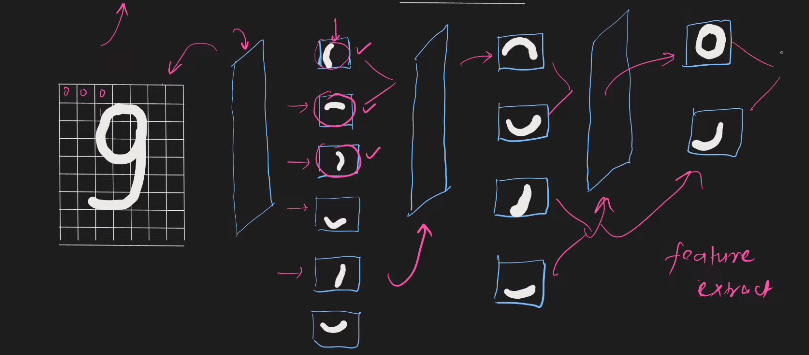 0 0 0
9
feature
extract